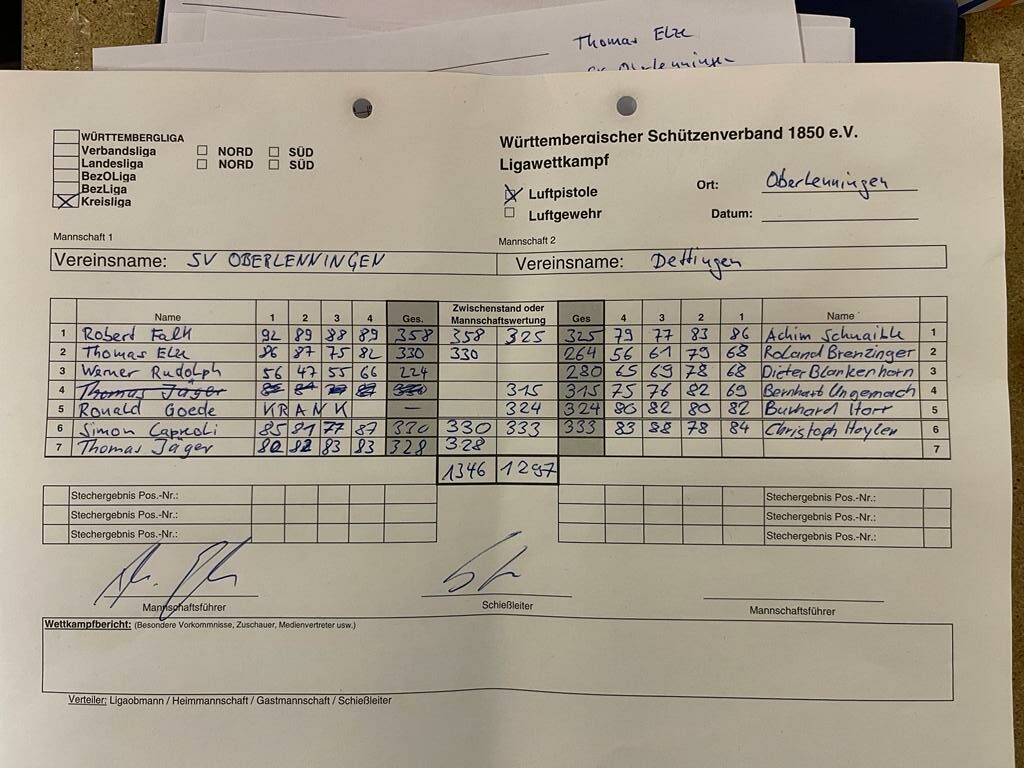 Thomas Elze
WÜRTTEMBERGLIGA
Verbandsliga NORD SÜD
Landesliga NORD SÜD
BezOLiga
BezLiga
Kreisliga
Württembergischer Schützenverband 1850 e.V.
Ligawettkampf
Luftpistole
Luftgewehr
Ort: Oberlenningen
Datum:
Mannschaft 1 Mannschaft 2
Vereinsname: SV OBERLENNINGEN Vereinsname: Dettingen
Name 1 2 3 4 Ges. Zwischenstand oder Mannschaftswertung Ges 4 3 2 1 Name
1 Robert Falk 92 89 88 89 358 358 325 325 79 77 83 86 Achim Schnaible 1
2 Thomas Elze 86 87 75 82 330 330 264 56 61 79 68 Roland Brenzinger 2
3 Werner Rudolph 56 47 55 66 224 280 65 69 78 68 Dieter Blankenhorn 3
4 Thomas Jäger 315 315 75 76 82 69 Bernhart Ungemach 4
5 Ronald Goede KRANK — 324 324 80 82 80 82 Burhard Horr 5
6 Simon 85 81 77 87 330 330 333 333 83 88 78 84 Christoph Hoyler 6
7 Thomas Jäger 80 82 83 83 328 328 7
1346 1297
Stechergebnis Pos.-Nr.: Stechergebnis Pos.-Nr.:
Stechergebnis Pos.-Nr.: Stechergebnis Pos.-Nr.:
Stechergebnis Pos.-Nr.: Stechergebnis Pos.-Nr.:
Mannschaftsführer Schießleiter Mannschaftsführer
Wettkampfbericht: (Besondere Vorkommnisse, Zuschauer, Medienvertreter usw.)
Verteiler: Ligaobmann / Heimmannschaft / Gastmannschaft / Schießleiter